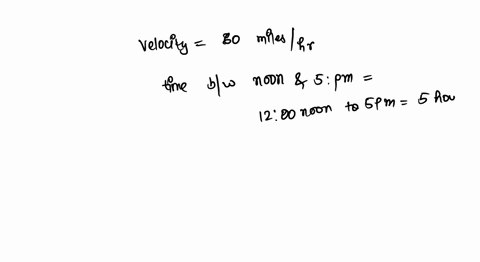 velocity = 80 miles/hr
time b/w noon & 5:pm =
12:00 noon to 5pm = 5 hou